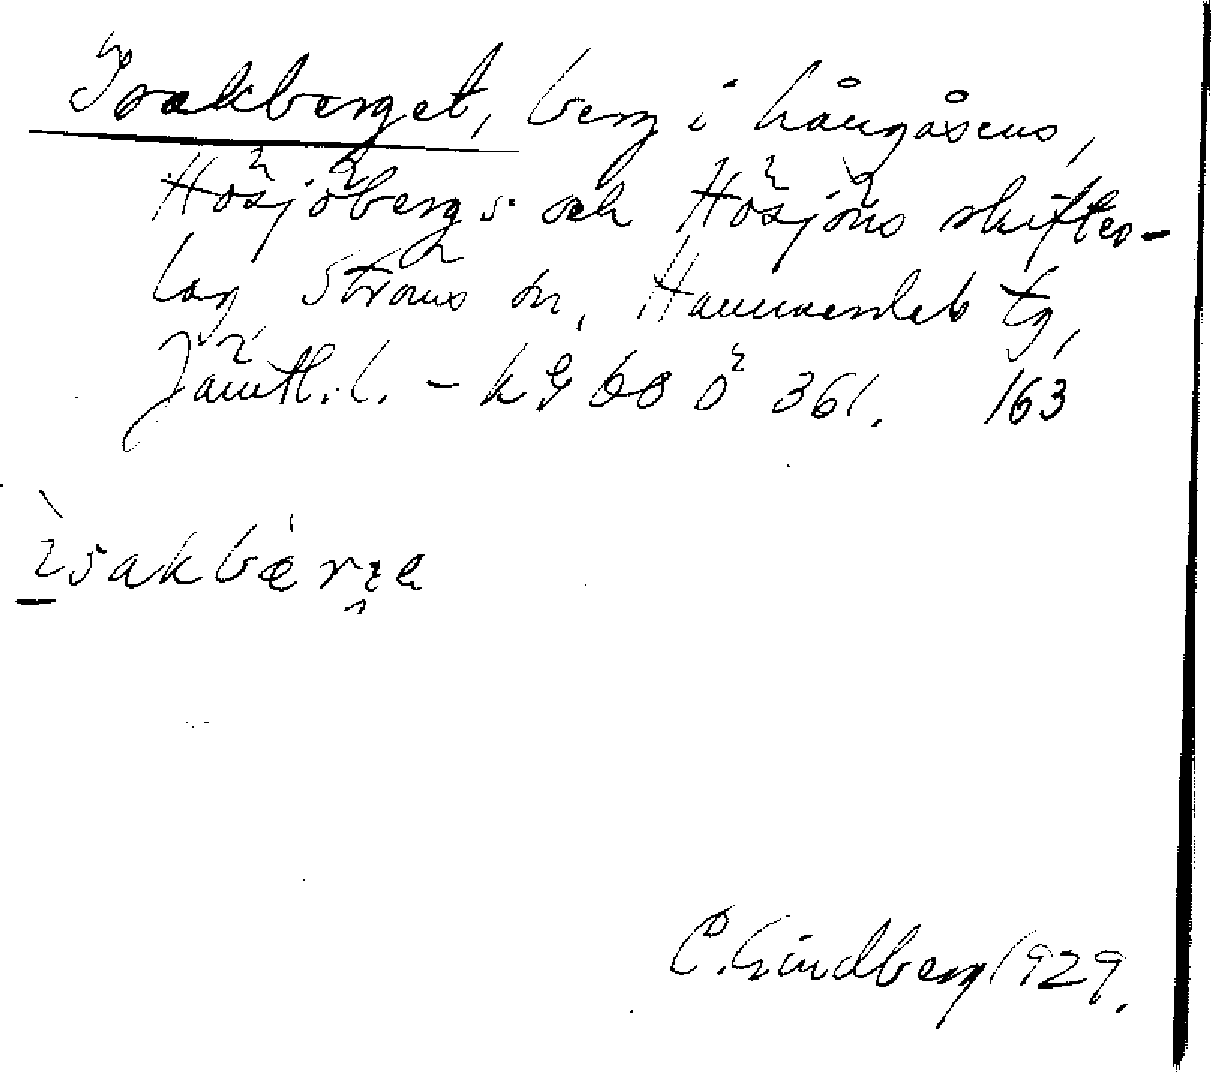 Isakberget, berg i Långåsens,
Hösjöbergs och Hösjöns skiftes-
lag Ströms sn, Hammerdals tg,
Jämtl. l. – kg 68 ö 361. 163
isakbærᶎe
C. Lindberg 1929.